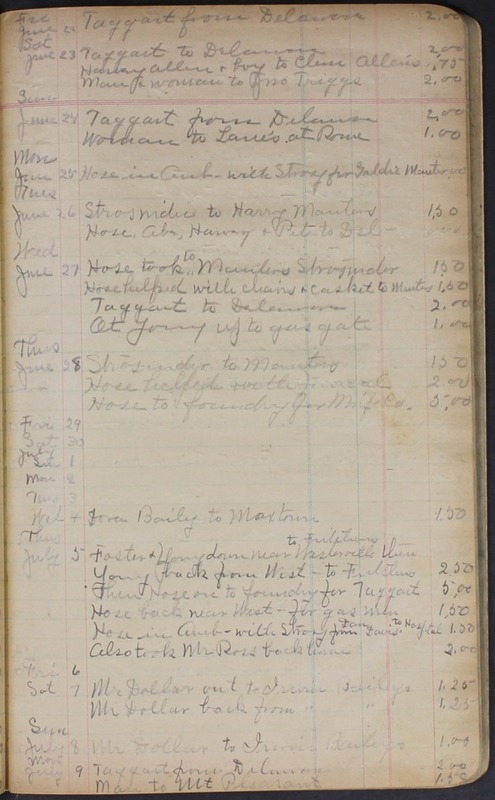 Fri
June 22 Taggart from Delaware 2.00
Sat
June 23 Taggart to Delaware 2.00
Harvey Allen & boy to Clem Allen's .75
Man & woman to Jno Triggs 2.00
Sun
June 24 Taggart from Delaware 2.00
Woman to Lane's at Rome 1.00
Mon
June 25 Hose in Amb- with Strong for
Tues
June 26 Strosnider to Harry Manters 1.50
Hose, Abe, Harvey & Pete to Del-
Wed
June 27 Hose took to Manters Strosnider 1.50
Hose helped with chairs & casket to Manters 1.50
Taggart to Delaware 2.00
At Young up to gas gate 1.00
Thurs
June 28 Strosnider to Manters 1.50
Hose helped with 2.00
Hose to foundry for Mnf Co. 5.00
Fri 29
Sat 30
July
Sun 1
Mon 2
Tues 3
Wed 4 Dora Baily to Maxtown 1.50
Thurs
to
July 5 Foster & Young down near Westerville then
Young back from West- to 2.50
Then Hose to foundry for Taggart 5.00
Hose back near West- for gas men 1.50
Hose in Amb- with Strong from Davis to Hospital 1.50
Also took Mr Ross back home 2.00
Fri 6
Sat 7 Mr Dollar out to Irvin Baileys 1.25
Mr Dollar back from " " 1.25
Sun
July 8 Mr Dollar to Irvin Baileys 1.00
Mon
July 9 Taggart from Delaware 2.00
Man to Mt Pleasant 1.50